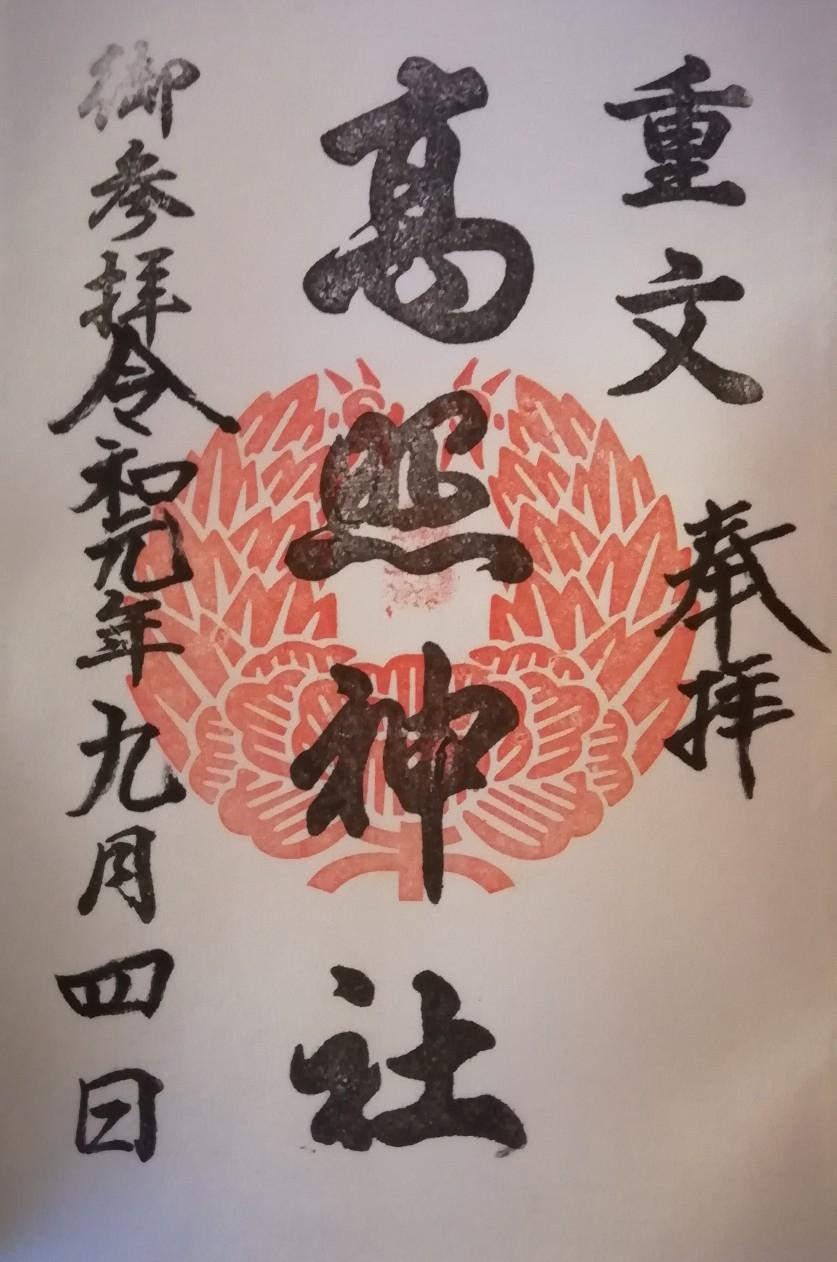 重文
奉拝
高照神社
御参拝令和元年九月四日